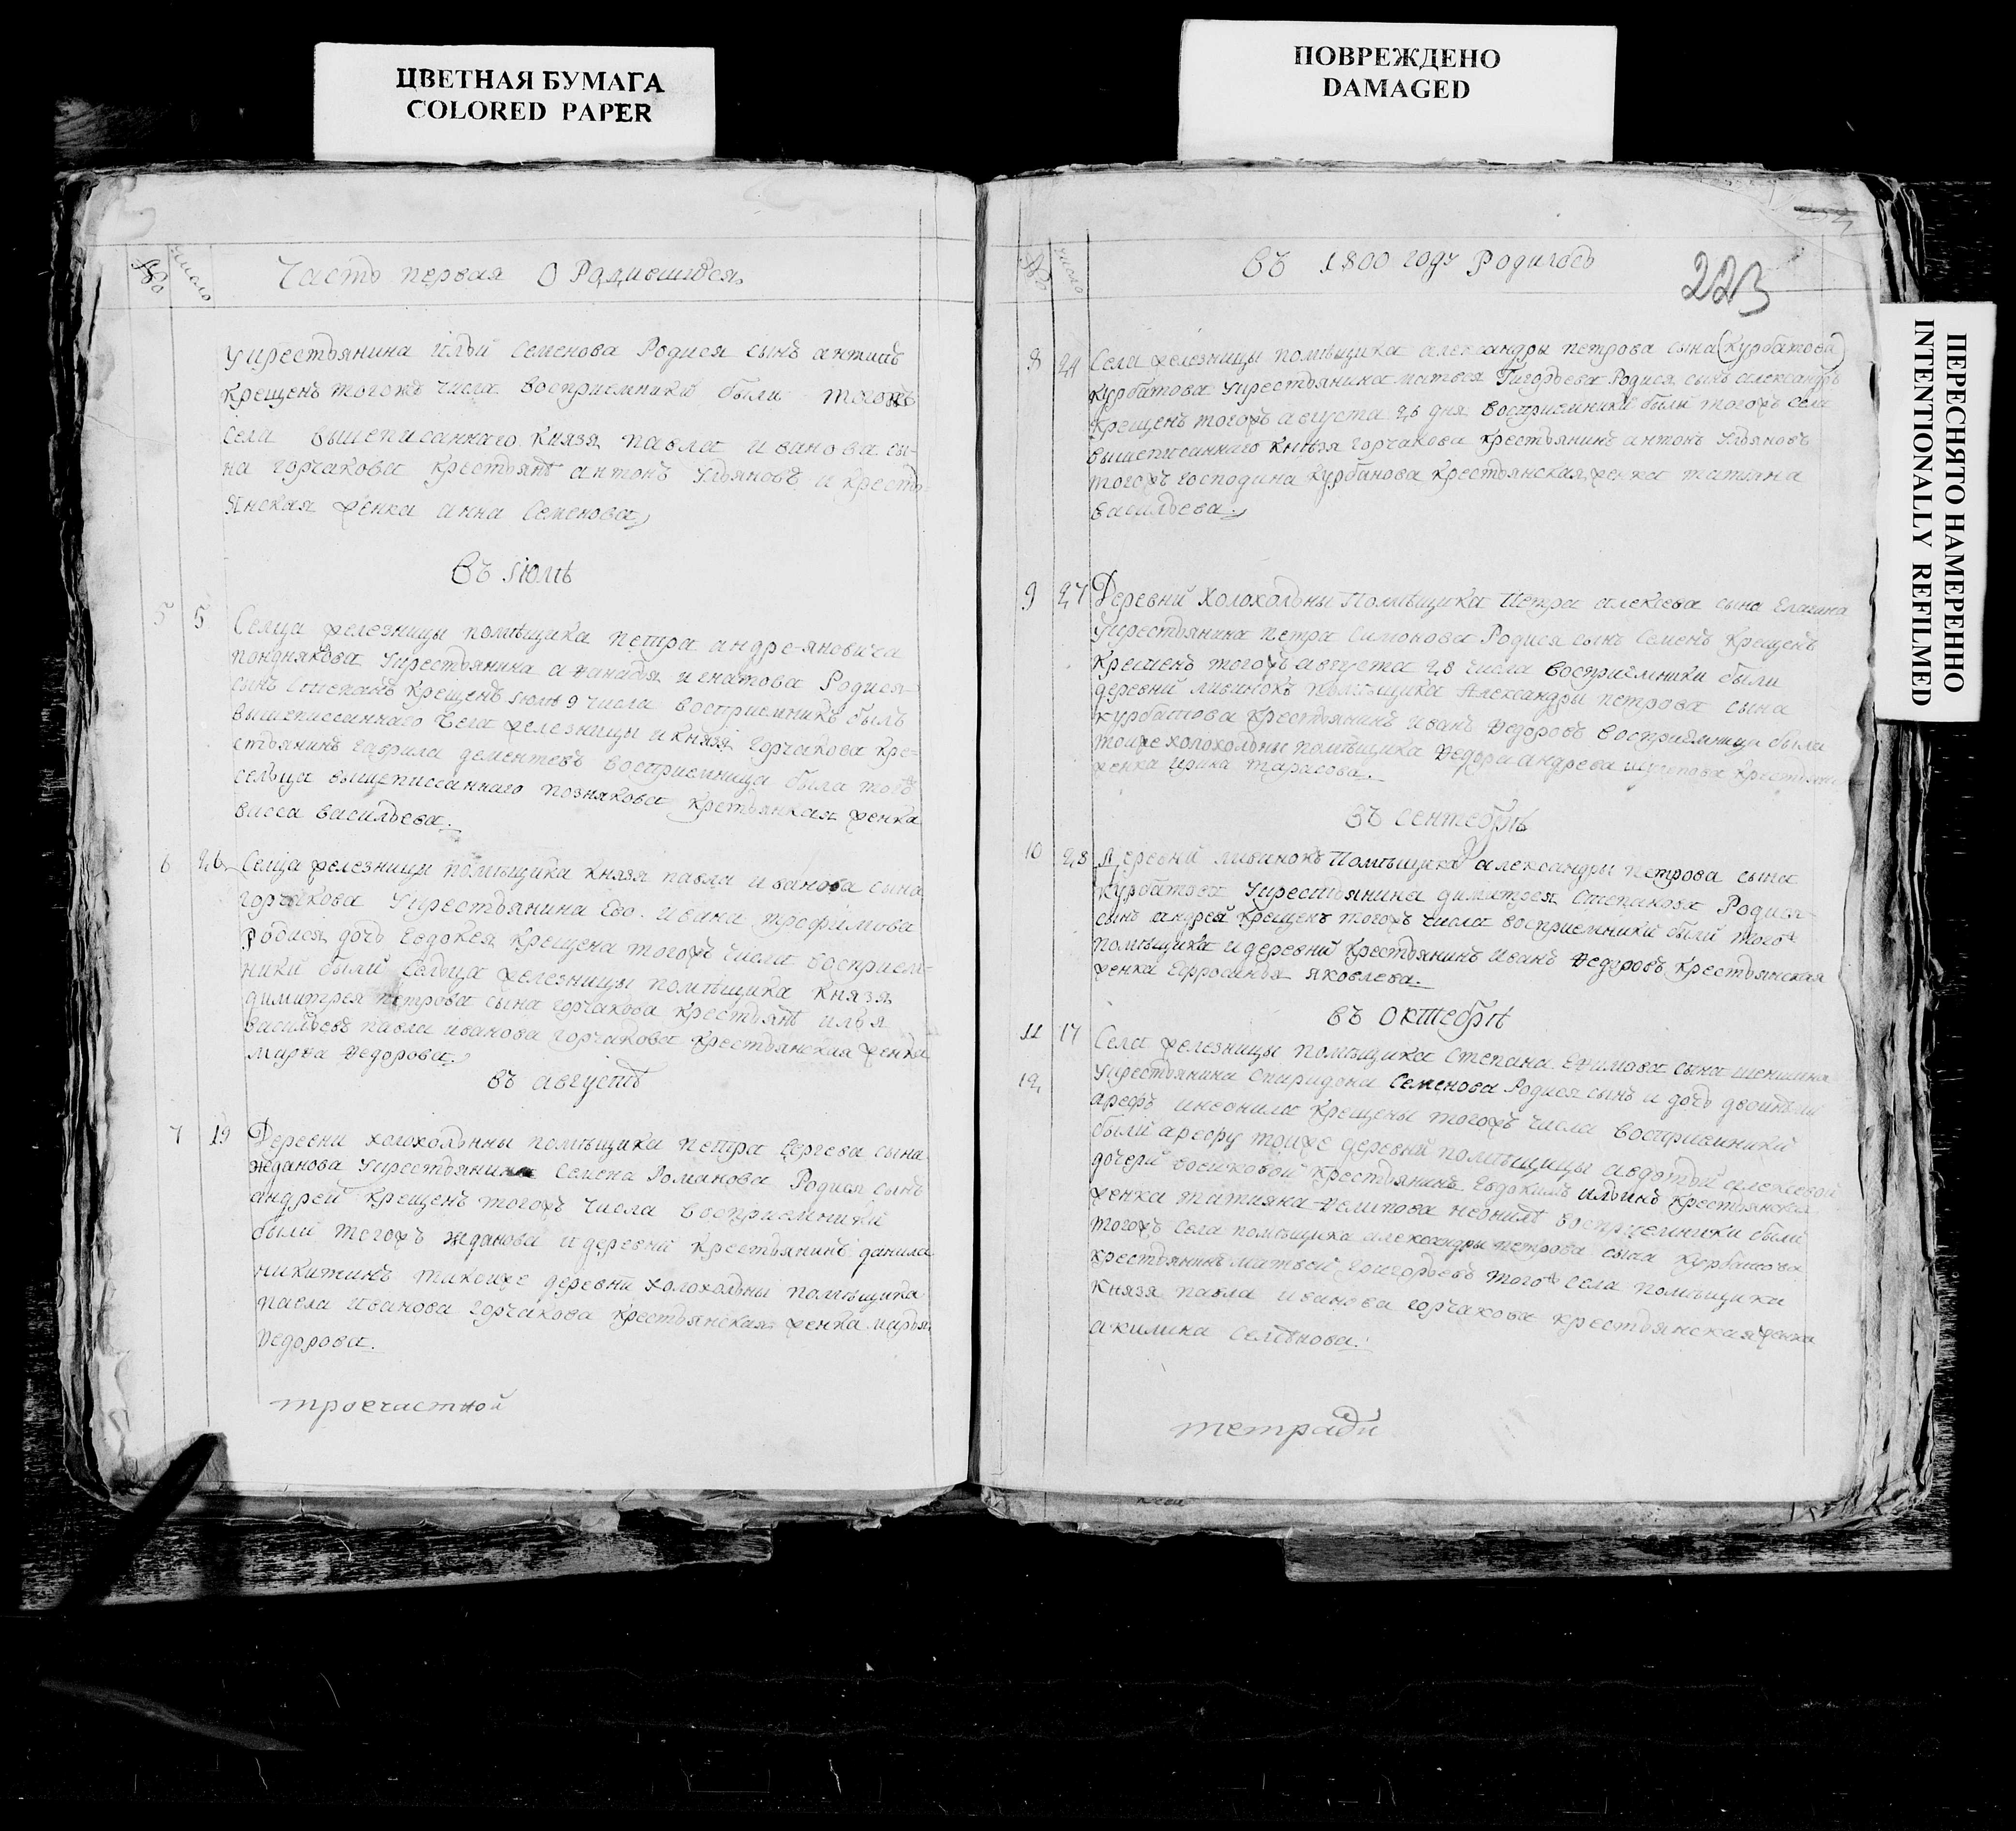 ЦВЕТНАЯ БУМАГА
COLORED PAPER
ПОВРЕЖДЕНО
DAMAGED
ПЕРЕСНЯТО НАМЕРЕННО
INTENTIONALLY REFILMED
число
Часть первая О Радившихся
укрестьянина Ильи Семенова Родися сынъ антипъ
крещенъ тогожъ числа восприемники были тогожъ
села вышеписаннаго князя павла иванова сы-
на горчакова крестьянъ антонъ Ульяновъ и кресть-
янская женка анна Семенова
въ июлѣ
5 5 Селца железницы помѣщика петра андре-яновича
позднякова укрестьянина афанасья игнатова Родися
сынъ Стефанъ крещенъ июля 9 числа восприемникъ былъ
вышеписсаннаго села железницы и князя горчакова кре=
стьянинъ гаврила дементевъ восприемница была тогожъ
сельца вышеписсаннаго познякова крстьянкая женка
васса васильева.
6 26 Селца железницы помѣщика князя павла иванова сына
горчакова укрестьянина Ево ивана трофимова
Родися дочь Евдокея крещена тогожъ числа восприем-
ники были Сельца железницы помѣщика князя
димитрея петрова сына горчакова крестьянъ илья
васильевъ павла иванова горчакова крестьянская женка
марфа федорова
въ августѣ
7 19 Деревни холохольны помѣщика петра Сергева сына
жданова укрестьянина Семена Романова Родися сынъ
андрей крещенъ тогожъ числа восприемники
были тогожъ жданова и деревни крестьянинъ данила
никитинъ такоже деревни холохольны помѣщика
павла иванова горчакова крестьянская женка марья
федорова.
троечастной
число
въ 1800 году Родилось
223
8 24 Села железницы помѣщика александры петрова сына (курбатова)
курбатова укрестьянина матвея Григорьева Родися сынъ александръ
крещенъ тогожъ августа 26 дня восприемники были тогожъ села
вышеписаннаго князя горчакова крестьянинъ антонъ Ульяновъ
тогожъ господина курбанова крестьянская женка татьяна
васильева.
9 27 Деревни Холохольны Помѣщика Петра алексева сына Елагина
укрестьянина петра Симонова Родися сынъ Семенъ крещенъ
крещенъ тогожъ августа 28 числа восприемники были
деревни ливинокъ помѣщика Александры петрова сына
курбатова крестьянинъ иванъ федоровъ восприемница была
тоиже холохольны помѣщика федора андрева крестьянск
женка ирина тарасова.
въ сентебрѣ
10 28 Деревни ливинокъ Помѣщика александры петрова сына
курбатова укрестьянина димитрея Степанова Родися
сынъ андрей крещенъ тогожъ числа восприемники были тогожъ
помѣщика и деревни крестьянинъ иванъ федоровъ крестьянская
женка Ефросинья яковлева.
въ октебрѣ
11 17 Села железницы помѣщика Степана Ефимова сына шеншина
12 укрестьянина Спиридона Семенова Родися сынъ и дочь двоинѣли
арефъ инеонила крещены тогожъ числа восприемники
были арефу тоиже деревни помѣщицы авдотьи алексевой
дочери крестьянинъ Евдокимъ ильинъ крестьянская
женка татияна филипова неонилѣ восприемники были
тогожъ Села помѣщика александры петрова сына курбатова
крестьянинъ матвей Григорьевъ тогожъ села помѣщика
князя павла иванова горчакова крестьянская женка
акилина Семѣнова.
тетради